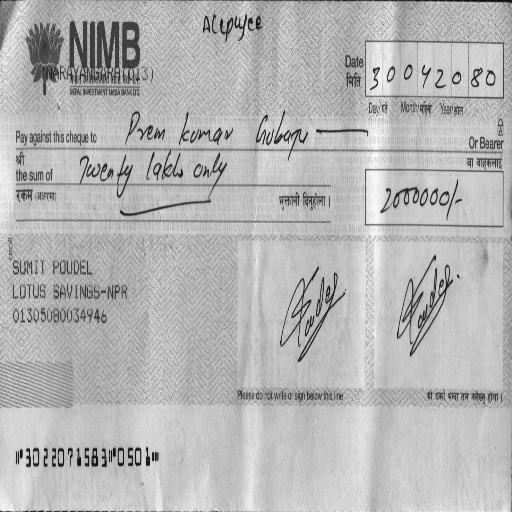 A/c payee
NIMB
NARAYANGARH(013)
NEPAL INVESTMENT MEGA BANK LTD.
Date
मिति
30042080
Day/गते Month/महिना Year/साल
Pay against this cheque to Prem kumar Gubaju
Or Bearer
श्री
वा वाहकलाई
the sum of Twenty lakhs only
रकम (अक्षरमा)
भुक्तानी दिनुहोला ।
2000000/-
SUMIT POUDEL
LOTUS SAVINGS-NPR
01305080034946
Poudel
Poudel
Please do not write or sign below this line
⑈3022071583⑈0501⑈